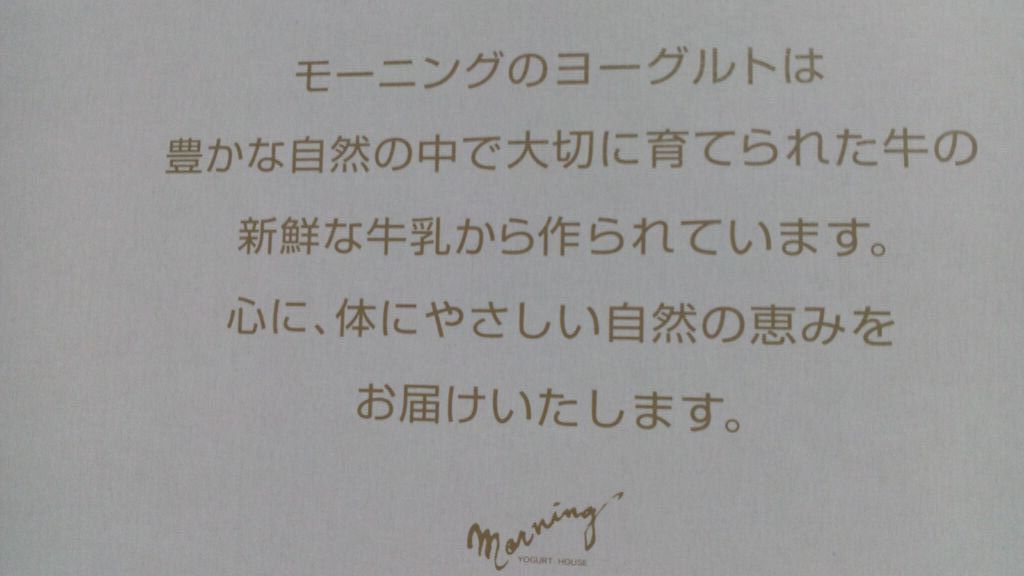 モーニングのヨーグルトは
豊かな自然の中で大切に育てられた牛の
新鮮な牛乳から作られています。
心に、体にやさしい自然の恵みを
お届けいたします。
morning
YOGURT HOUSE